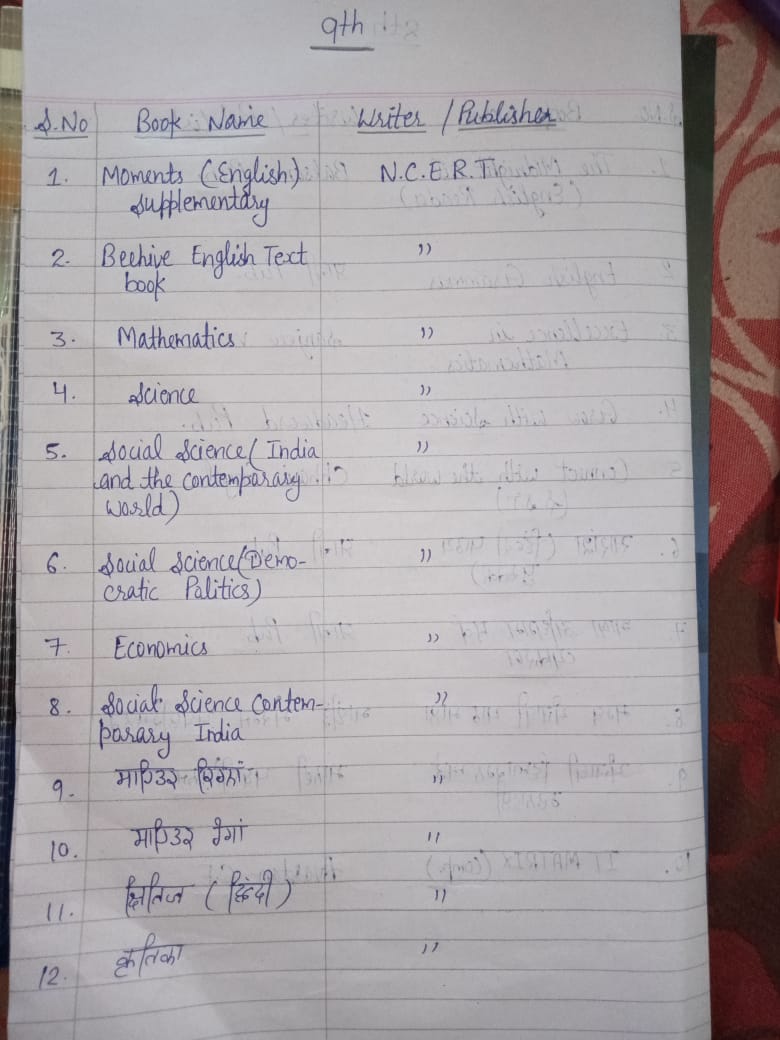 9th
S.No Book Name Writer / Publisher
1. Moments (English) N.C.E.R.T
supplementary
2. Beehive English Text "
book
3. Mathematics "
4. Science "
5. Social Science( India "
and the contemparary
World)
6. Social Science(Demo- "
cratic Palitics)
7. Economics "
8. Social Science Contem- "
parary India
9. "
10. "
11. क्षितिज (हिंदी) "
12. कृतिका "